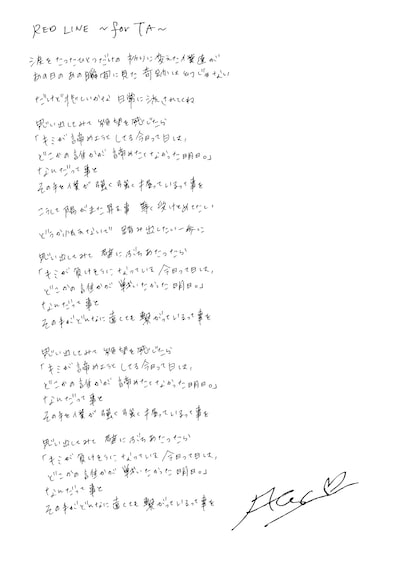 RED LINE ～for TA～
涙をたったひとつだけの 祈りに変えた僕達が
あの日のあの瞬間に見た 奇跡は幻じゃない
だけど悲しいかな 日常に流されてくね
思い出してみて 絶望を感じたら
「キミが諦めようとしてる今日って日は、
どこかの誰かが 諦めたくなかった明日。」
なんだって事を
その手を僕が 強く強く握っているって事を
こうして陽がまた昇る事 尊く受けとめてたい
どうか忘れないで 踏み出したい一歩に
思い出してみて 壁にぶちあたったら
「キミが負けそうになっている 今日って日は、
どこかの誰かが 戦いたかった明日。」
なんだって事を
その手がどんなに遠くても 繋がっているって事を
思い出してみて 絶望を感じたら
「キミが諦めようとしてる今日って日は、
どこかの誰かが 諦めたくなかった明日。」
なんだって事を
その手を僕が 強く強く握っているって事を
思い出してみて 壁にぶちあたったら
「キミが負けそうになっている 今日って日は、
どこかの誰かが 戦いたかった明日。」
なんだって事を
その手がどんなに遠くても 繋がっているって事を